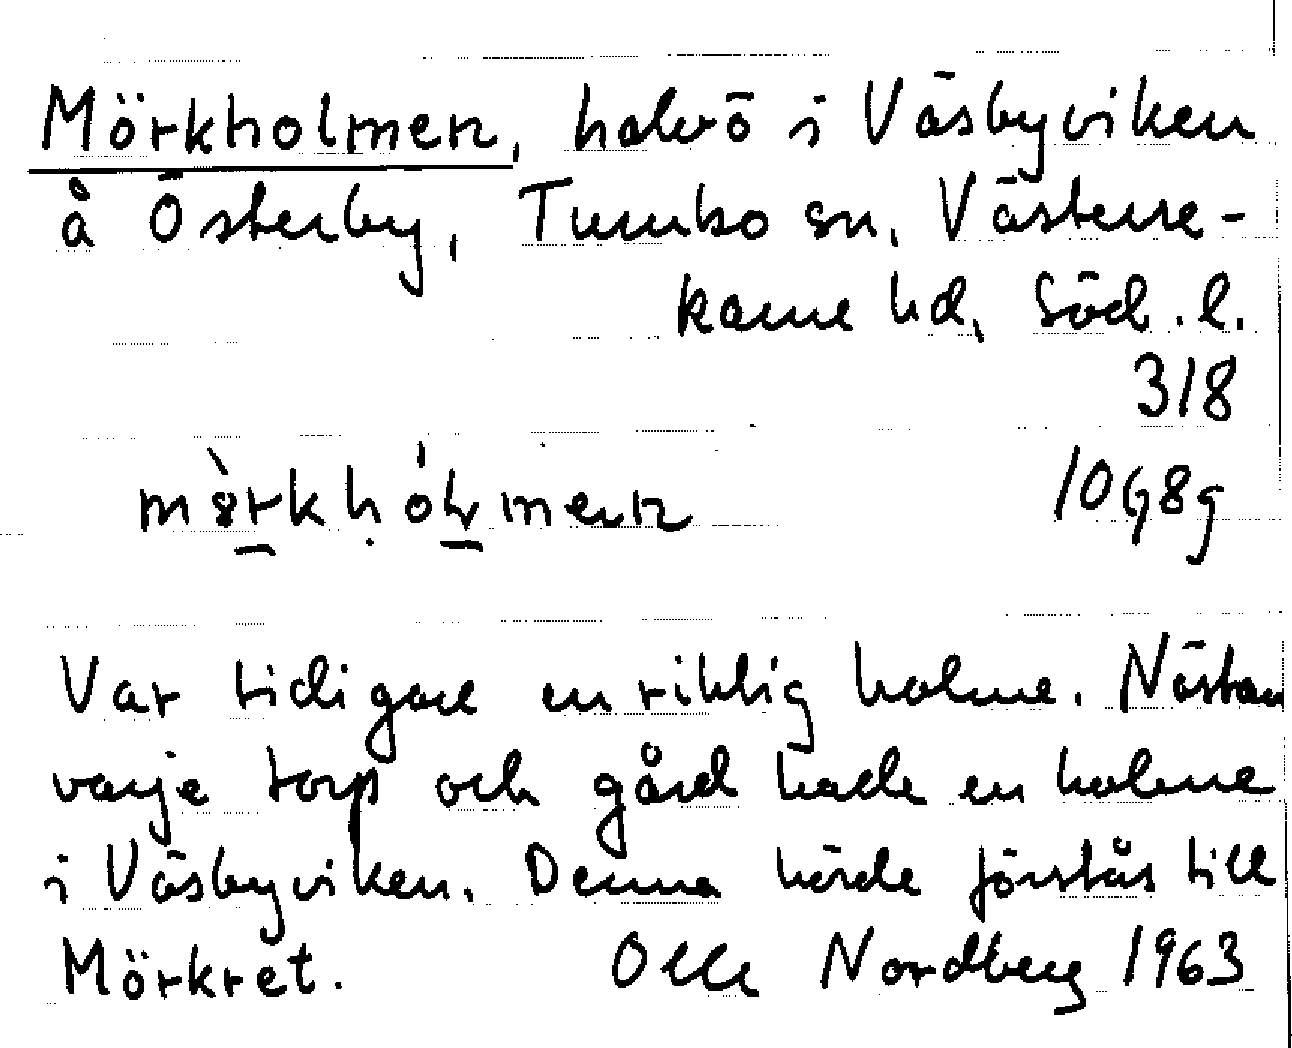 Mörkholmen, halvö i Väsbyviken
å Österby, Tumbo sn, Västerre-
karne hd, Söd. l.
318
10G8g
Var tidigare en riktig holme. Nästan
varje torp och gård hade en holme
i Väsbyviken. Denna hörde förstås till
Mörkret. Olle Nordberg 1963